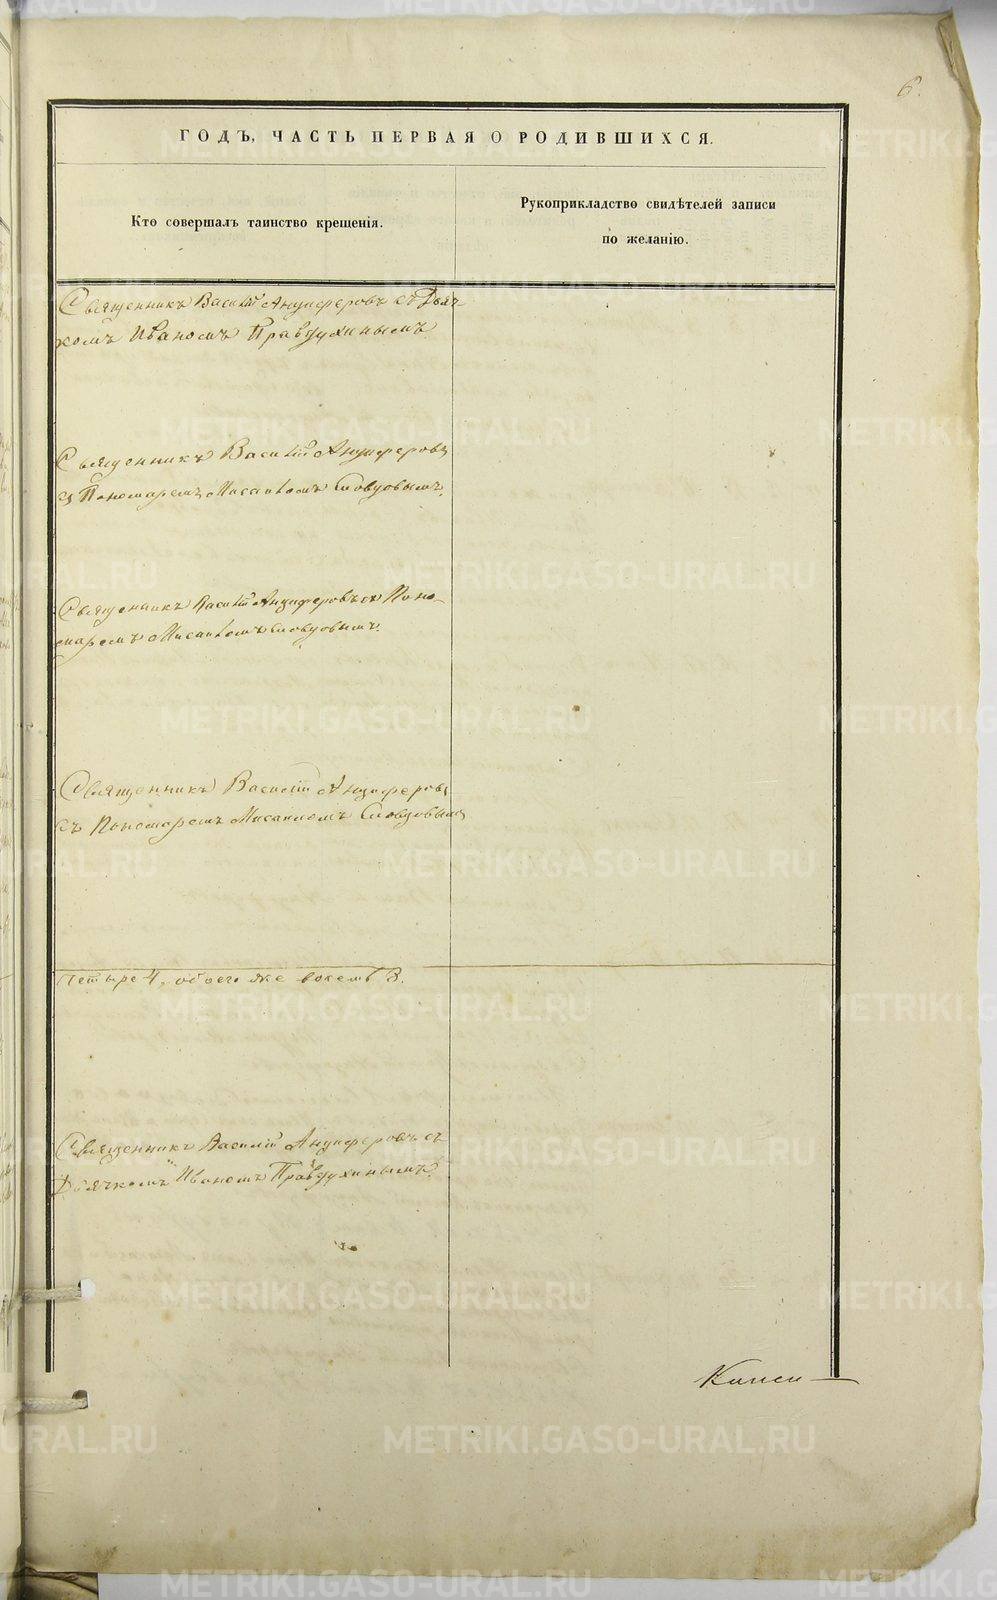 6.
ГОДЪ, ЧАСТЬ ПЕРВАЯ О РОДИВШИХСЯ.
Кто совершалъ таинство крещенія.
Рукоприкладство свидѣтелей записи
по желанію.
Священникъ Василій Анциферовъ съ Дьяч
комъ Иваномъ Правдухинымъ.
Священникъ Василій Анциферовъ
съ Пономаремъ Мисаиломъ Словцовымъ.
Священникъ Василій Анциферовъ съ Поно
маремъ Мисаиломъ Словцовымъ.
Священникъ Василій Анциферовъ
съ Пономаремъ Мисаиломъ Словцовымъ
четыре 4, обоего же восемь 8.
Священникъ Василій Анциферовъ съ
Дьячкомъ Иваномъ Правдухинымъ.
METRIKI.GASO-URAL.RU